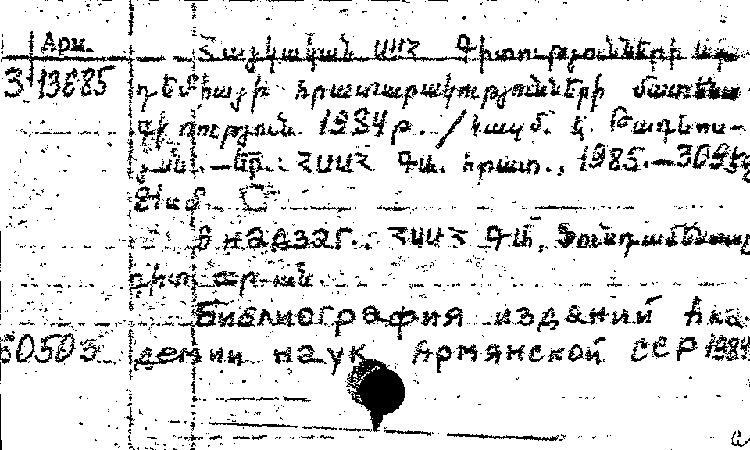 Арм.
Հայկական ՍՍՀ Գիտությունների Ակա
3 13885 դեմիայի հրատարակությունների մատենա
գիտություն 1984թ. / Կազմ. Կ.
— Եր.: ՀՍՍՀ ԳԱ հրատ., 1985. — 309էջ
В надзаг.: ՀՍՍՀ ԳԱ, Ֆունդամենտալ
գիտ. գր-ան.
Библиография изданий Ака
60503 демии наук Армянской ССР 1984